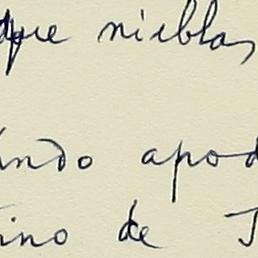 que nieblas
ando apod
ino de